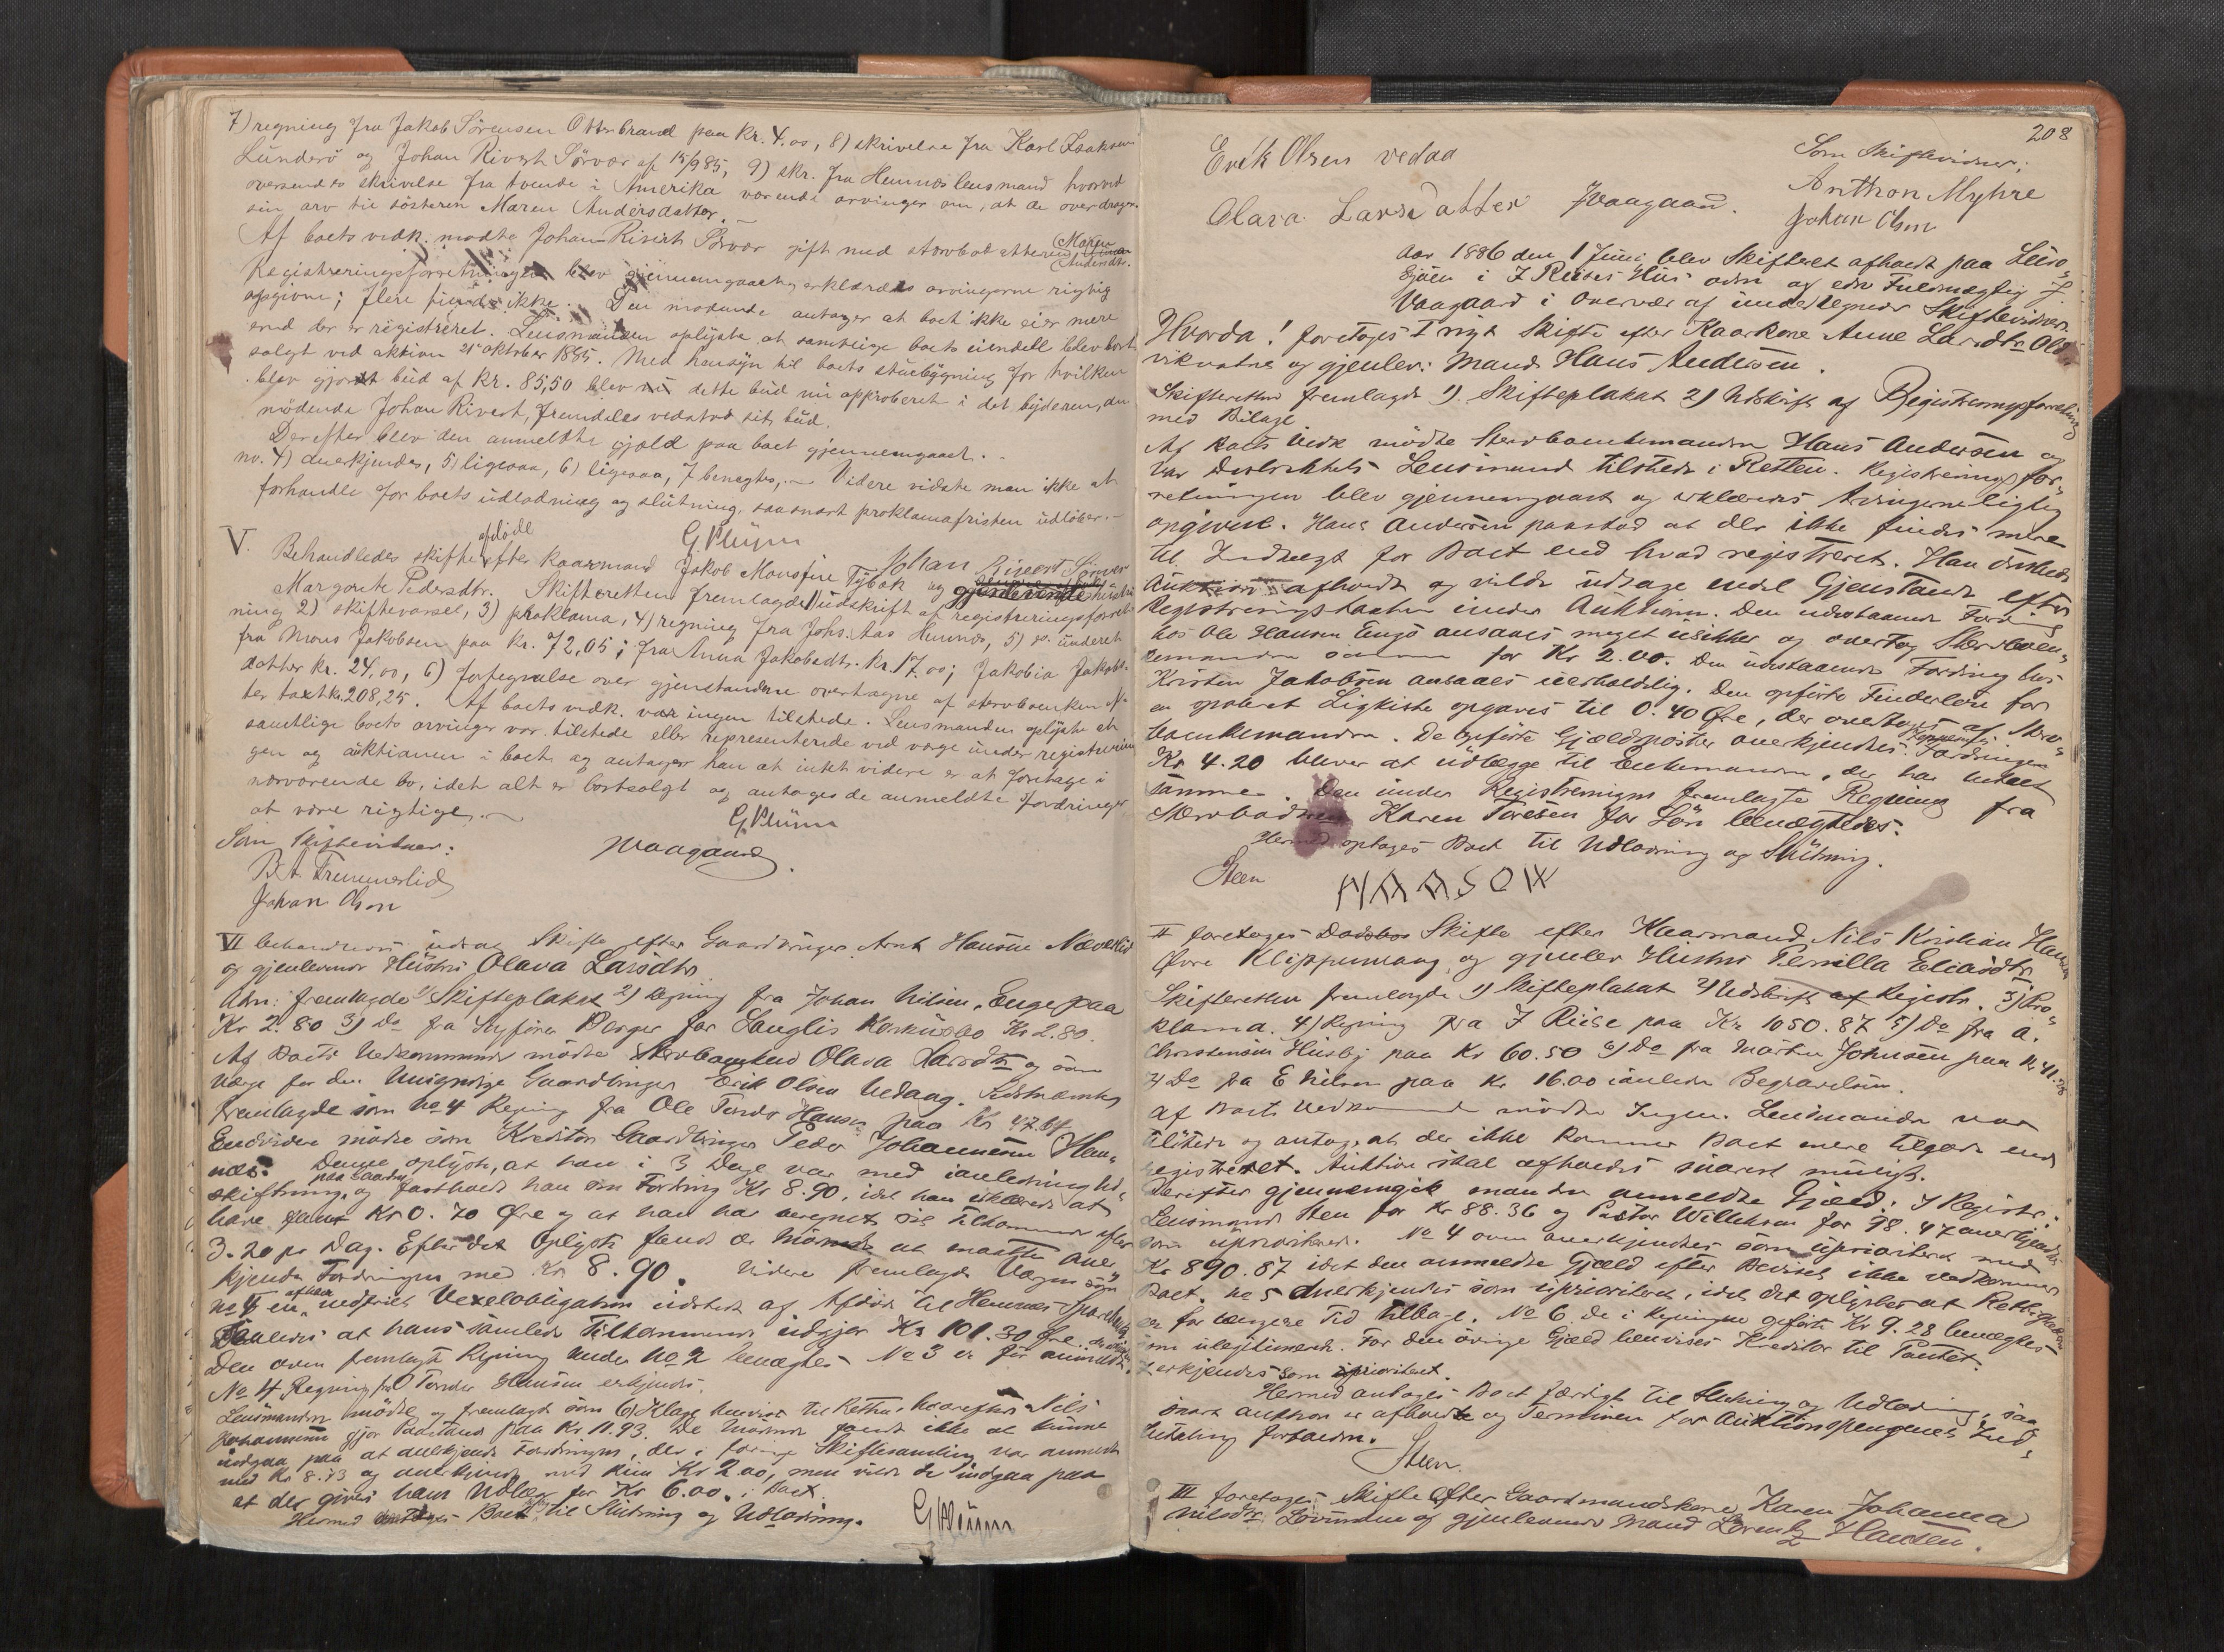 7) regning fra Jakob Sörensen Ottersbrand paa Kr. 4.00, 8) skrivelse fra Karl Isaksen
Lünderö og Johan Rivert Sörvær af 15/9 85, 9) skr. fra Hemnes lensmand hvorved
oversendes skrivelse fra tvende i Amerika værende arvinger om, at de overdrager
sin arv til sösteren Maren Andersdatter. –
Af boets vedk. mødte Johan Rivert Sörvær gift med stervbodatteren Maren Andersdtr.
Registreringsforretningen blev gjennemgaaet, erklæredes arvingerne rigtig
opgivne; flere findes ikke. Den mødende antager at boet ikke eier mere
end der er registreret. Lensmanden oplyste, at samtlige boets eiendele blev bort
solgt ved aktion 21 oktober 1885. Med hensyn til boets stuebygning for hvilken
blev gjort bud af Kr. 85,50 blev dette bud nu approberet i det bydere, den
mödende Johan Rivert, fremdeles vedstod sit bud.
Derefter blev den anmeldte gjæld paa boet gjennemgaaet. –
no. 4) anerkjendes, 5) ligesaa, 6) ligesaa, 7 benegtes, – Videre vidste man ikke at
forhandle for boets udlodning og slutning, saasnart proklamafristen udlöber. –
GKlüwn Johan Rivert Sörvær
V. Behandledes skifte efter afdöde kaarmand Jakob Monsen Tybak og gjenlevende
Margrete Pedersdtr. Skifteretten fremlagde 1) udskrift af registreringsforret
ning 2) skiftevarsel, 3) proklama, 4) regning fra Johs. Aas Hemnes, 5)
fra Mons Jakobsen paa Kr. 72,05; fra Anna Jakobsdtr. Kr. 17.00; Jakobia Jakobs
datter kr. 24,00, 6) fortegnelse over gjenstandene overtagne af stervboenken
ter taxt kr. 208,25. Af boets vedk. var ingen tilstede. Lensmanden oplyste at
samtlige boets arvinger var tilstede eller representerede ved verge under registrerin
gen og auktionen i boet og antager han at intet videre er at foretage i
nærværende bo, idet alt er bortsolgt og antages de anmeldte fordringer
at være rigtige. –
GKlüwn
Som skiftevidner:
Waagaard.
B. A. Tremmerlid
Johan Olsen
VI behandledes Skifte efter Gaardbruger Arnt Hansen Næverlid
og gjenlevende Hustru Olava Larsdtr
Adm: fremlagde 1) Skifteplakat 2) Regning fra Johan Nilsen, Enge paa
Kr 2.80 3) Do fra Styfören Berger for Langlis Kr 2.80.
Af Boets Vedkommende mödte Stervboenken Olava Larsdtr og som
Værge for den Umyndige Gaardbruger Erik Olsen Vedaag.
fremlagde som No 4 Regning fra Ole Tonder Hansen paa Kr 47.64
Endvidere mödte som Kreditor Gaardbruger Peder Johannesen Hem
nes. Denne oplyste, at han i 3 Dage var med i anledning Ud-
skiftning paa Gaarden og fastholdt han sin Fordring Kr 8.90, idet han erklærede at
have faaet Kr 0.70 Öre og at han har beregnet sit Tilkommende efter
3.20 pr Dag. Efter det Oplyste fandt at maatte aner
kjende Fordringen med Kr 8.90. Videre fremlagde Værgen som
No 5 en af ham indfriet Vexelobligation udstedt af Afdöde til Hemnes Sparebank
saaledes at hans samlede Tilkommende udgjör Kr 101.30 Öre.
Den oven fremlagte Regning under No 2 benægtes No 3 er för anmeldt
No 4 Regning fra O Tonder Hansen erkjendes.
Lensmanden mödte og fremlagde som 6) Klage til Retten, hvorefter Nils
Johannesen gjör Paastand paa Kr. 11.93. De Mödende fandt ikke at kunne
indgaa paa at anerkjende Fordringen, der i forrige Skiftesamling var anmeldt
med Kr 8.73 og anerkjendt med kun Kr 2.00, men vilde de indgaa paa
at der gives ham Udlæg for Kr 6.00 i Boet.
Hermed Boet til Slutning og Udlodning.
GKlüwn
208
Erik Olsen vedaa
Som Skiftevidner:
Olava Larsdatter Waagaard.
Anthon Myhre
Johan Olsen
Aar 1886 den 1 Juni blev Skifteret afholdt paa Leiro
Sjöen i J Reises Hus adm af edv Fuldmægtig J.
Waagaard i Overvær af undertegnede Skiftevidner.
Hvorda! foretages I nyt Skifte efter Kaarkone Anne Larsdtr Olds
vikvatne og gjenlev. Mand Hans Andersen.
Skifteretten fremlagde 1) Skifteplakat 2) Udskrift af Registreringsforretning
med Bilage
Af Boets Vedk mödte Stervboenkemanden Hans Andersen og
var Distriktets Lensmand tilstede i Retten. Registreringsfor
retningen blev gjennemgaaet og erklæredes Arvingerne rigtig
opgivne. Hans Andersen paastod at der ikke findes mere
til Indtægt for Boet end hvad registreret. Han önskede
Auktion afholdt og vilde udtage endel Gjenstande efter
Registreringstaxten under Auktionen. Den udestaaende Fordring
hos Ole Hansen Engö ansaaes meget usikker og overtog Stervboen
kemanden samme for Kr 2.00. Den udestaaende Fordring hos
Kristen Jakobsen ansaaes uerholdelig. Den opförte Finderlön for
en opdrevet Ligkiste opgaves til 0.40 Öre, der overtoges af Sterv
boenkemanden. De opförte Gjældsposter anerkjendtes. Fordringen
Kr 4.20 bliver at udlægge til Enkemanden, der har betalt
samme. Den under Registreringen fremlagte Regning fra
Karen Toresen for Lön benægtedes.
Hermed optages Boet til Udlodning og Slutning.
Steen HAASON
II foretages Skifte efter Kaarmand Nils Kristian Hansen
Övre Klippenvaag og gjenlev Hustru Pernilla Eliasdtr
Skifteretten fremlagde 1) Skifteplakat 2) Udskrift af Registr. 3) Pro-
klama. 4) Regning fra J Riise paa Kr 1050.87 5) Do fra A.
Christensen Husby paa Kr 60.50 6) Do fra Martin Johnsen paa Kr 41.
7) Do fra E Nilsen paa Kr 16.00 i anledn Begravelsen.
Af Boets Vedkommende mödte Ingen. Lensmanden var
tilstede og antog, at der ikke kommer Boet mere tilgode end
registreret. Auktion skal afholdes snarest muligt.
Derefter gjennemgik man den anmeldte Gjæld. I Registr.
Lensmand Steen for Kr 88.36 og Pastor Willekson for 98.47 anerkjendtes
som uprioriteret. No 4 oven anerkjendtes som uprioriteret med
Kr 890.87 idet den anmeldte Gjæld efter Beviset ikke vedkommer
Boet. No 5 anerkjendes som uprioriteret, idet det oplystes at Rettigheden
er for længere Tid tilbage. No 6 de i Regningen opförte Kr 9.28 benægtes
som ulegitimeret. For den övrige Gjæld henvises Kreditor til Pantet.
7 erkjendes som uprioriteret.
Hermed antages Boet færdigt til Slutning og Udlodning, saa
snart Auktion er afholdt og Terminen for Auktionspengenes Ind
betaling forfalden.
Steen.
III foretages Skifte efter Gaardmandskone Karen Johanna
Nilsdtr og gjenlevende Mand Lorentz Hansen.